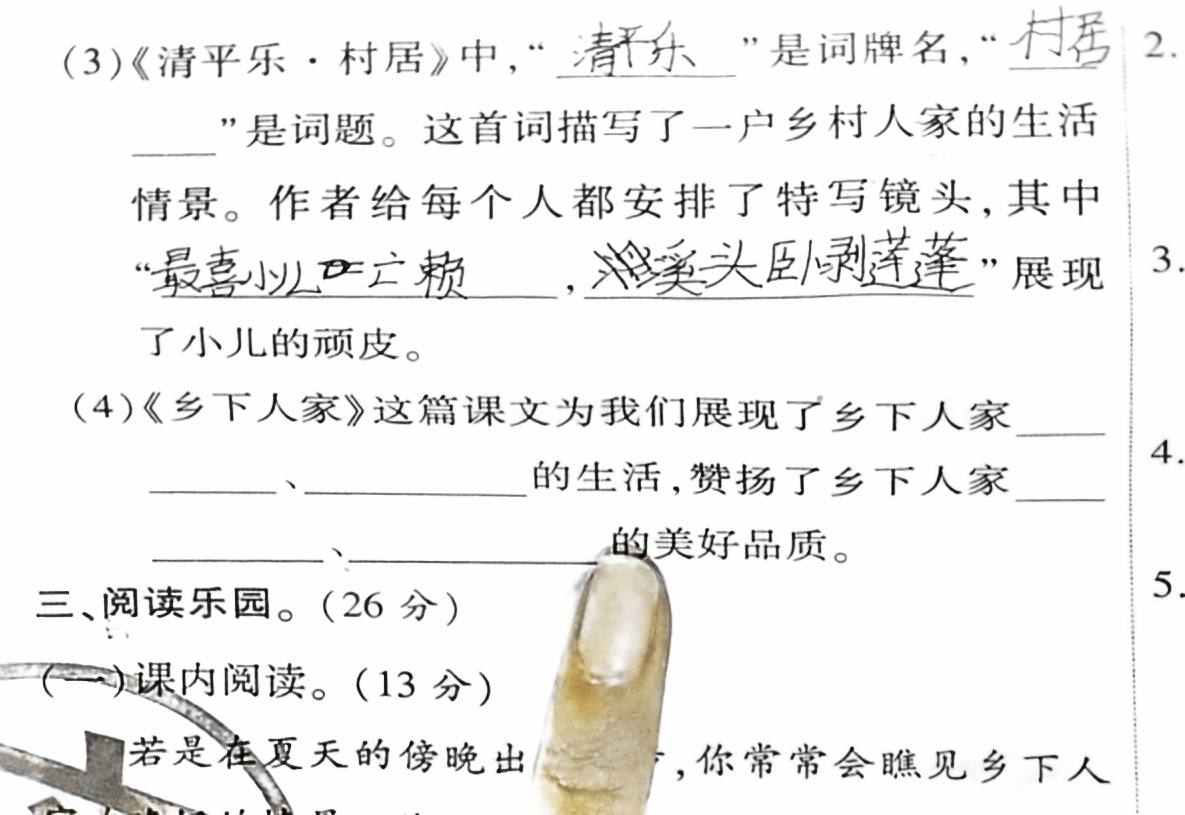 (3)《清平乐·村居》中,“清平乐”是词牌名,“村居 2.
____”是词题。这首词描写了一户乡村人家的生活
情景。作者给每个人都安排了特写镜头,其中
“最喜小儿亡赖,溪头卧剥莲蓬”展现 3.
了小儿的顽皮。
(4)《乡下人家》这篇课文为我们展现了乡下人家____
______、__________的生活,赞扬了乡下人家____ 4.
________、____________的美好品质。
三、阅读乐园。(26 分) 5.
(一)课内阅读。(13 分)
若是在夏天的傍晚出 ,你常常会瞧见乡下人